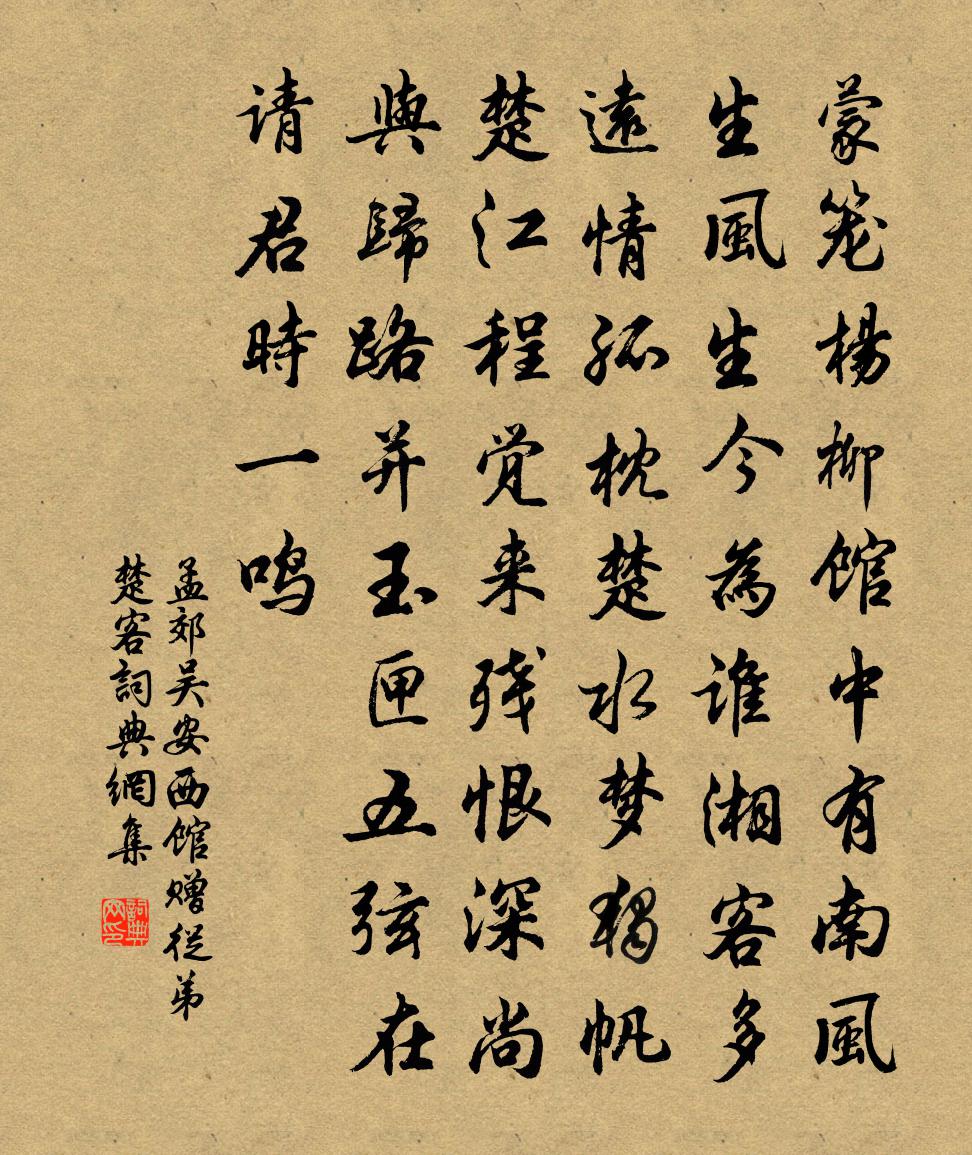 蒙笼楊柳馆中有南風
生風生今為谁湘客多
遠情孤枕楚水梦獨帆
楚江程觉来残恨深尚
與歸路并玉匣五弦在
请君時一鸣
孟郊吴安西馆赠従弟
楚客詞典網集
詞典
网印